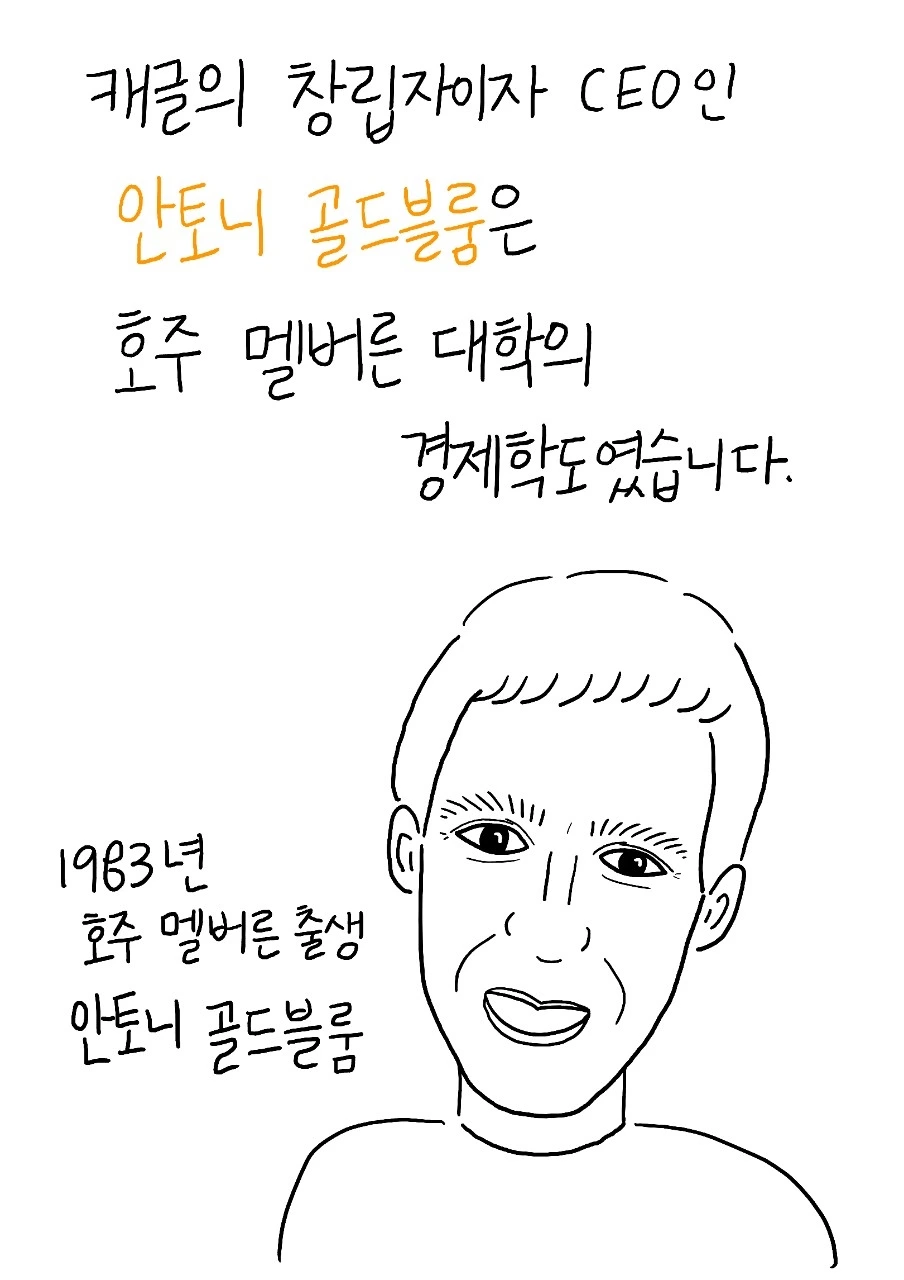 캐글의 창립자이자 CEO인
안토니 골드블룸은
호주 멜버른 대학의
경제학도였습니다.
1983년
호주 멜버른 출생
안토니 골드블룸